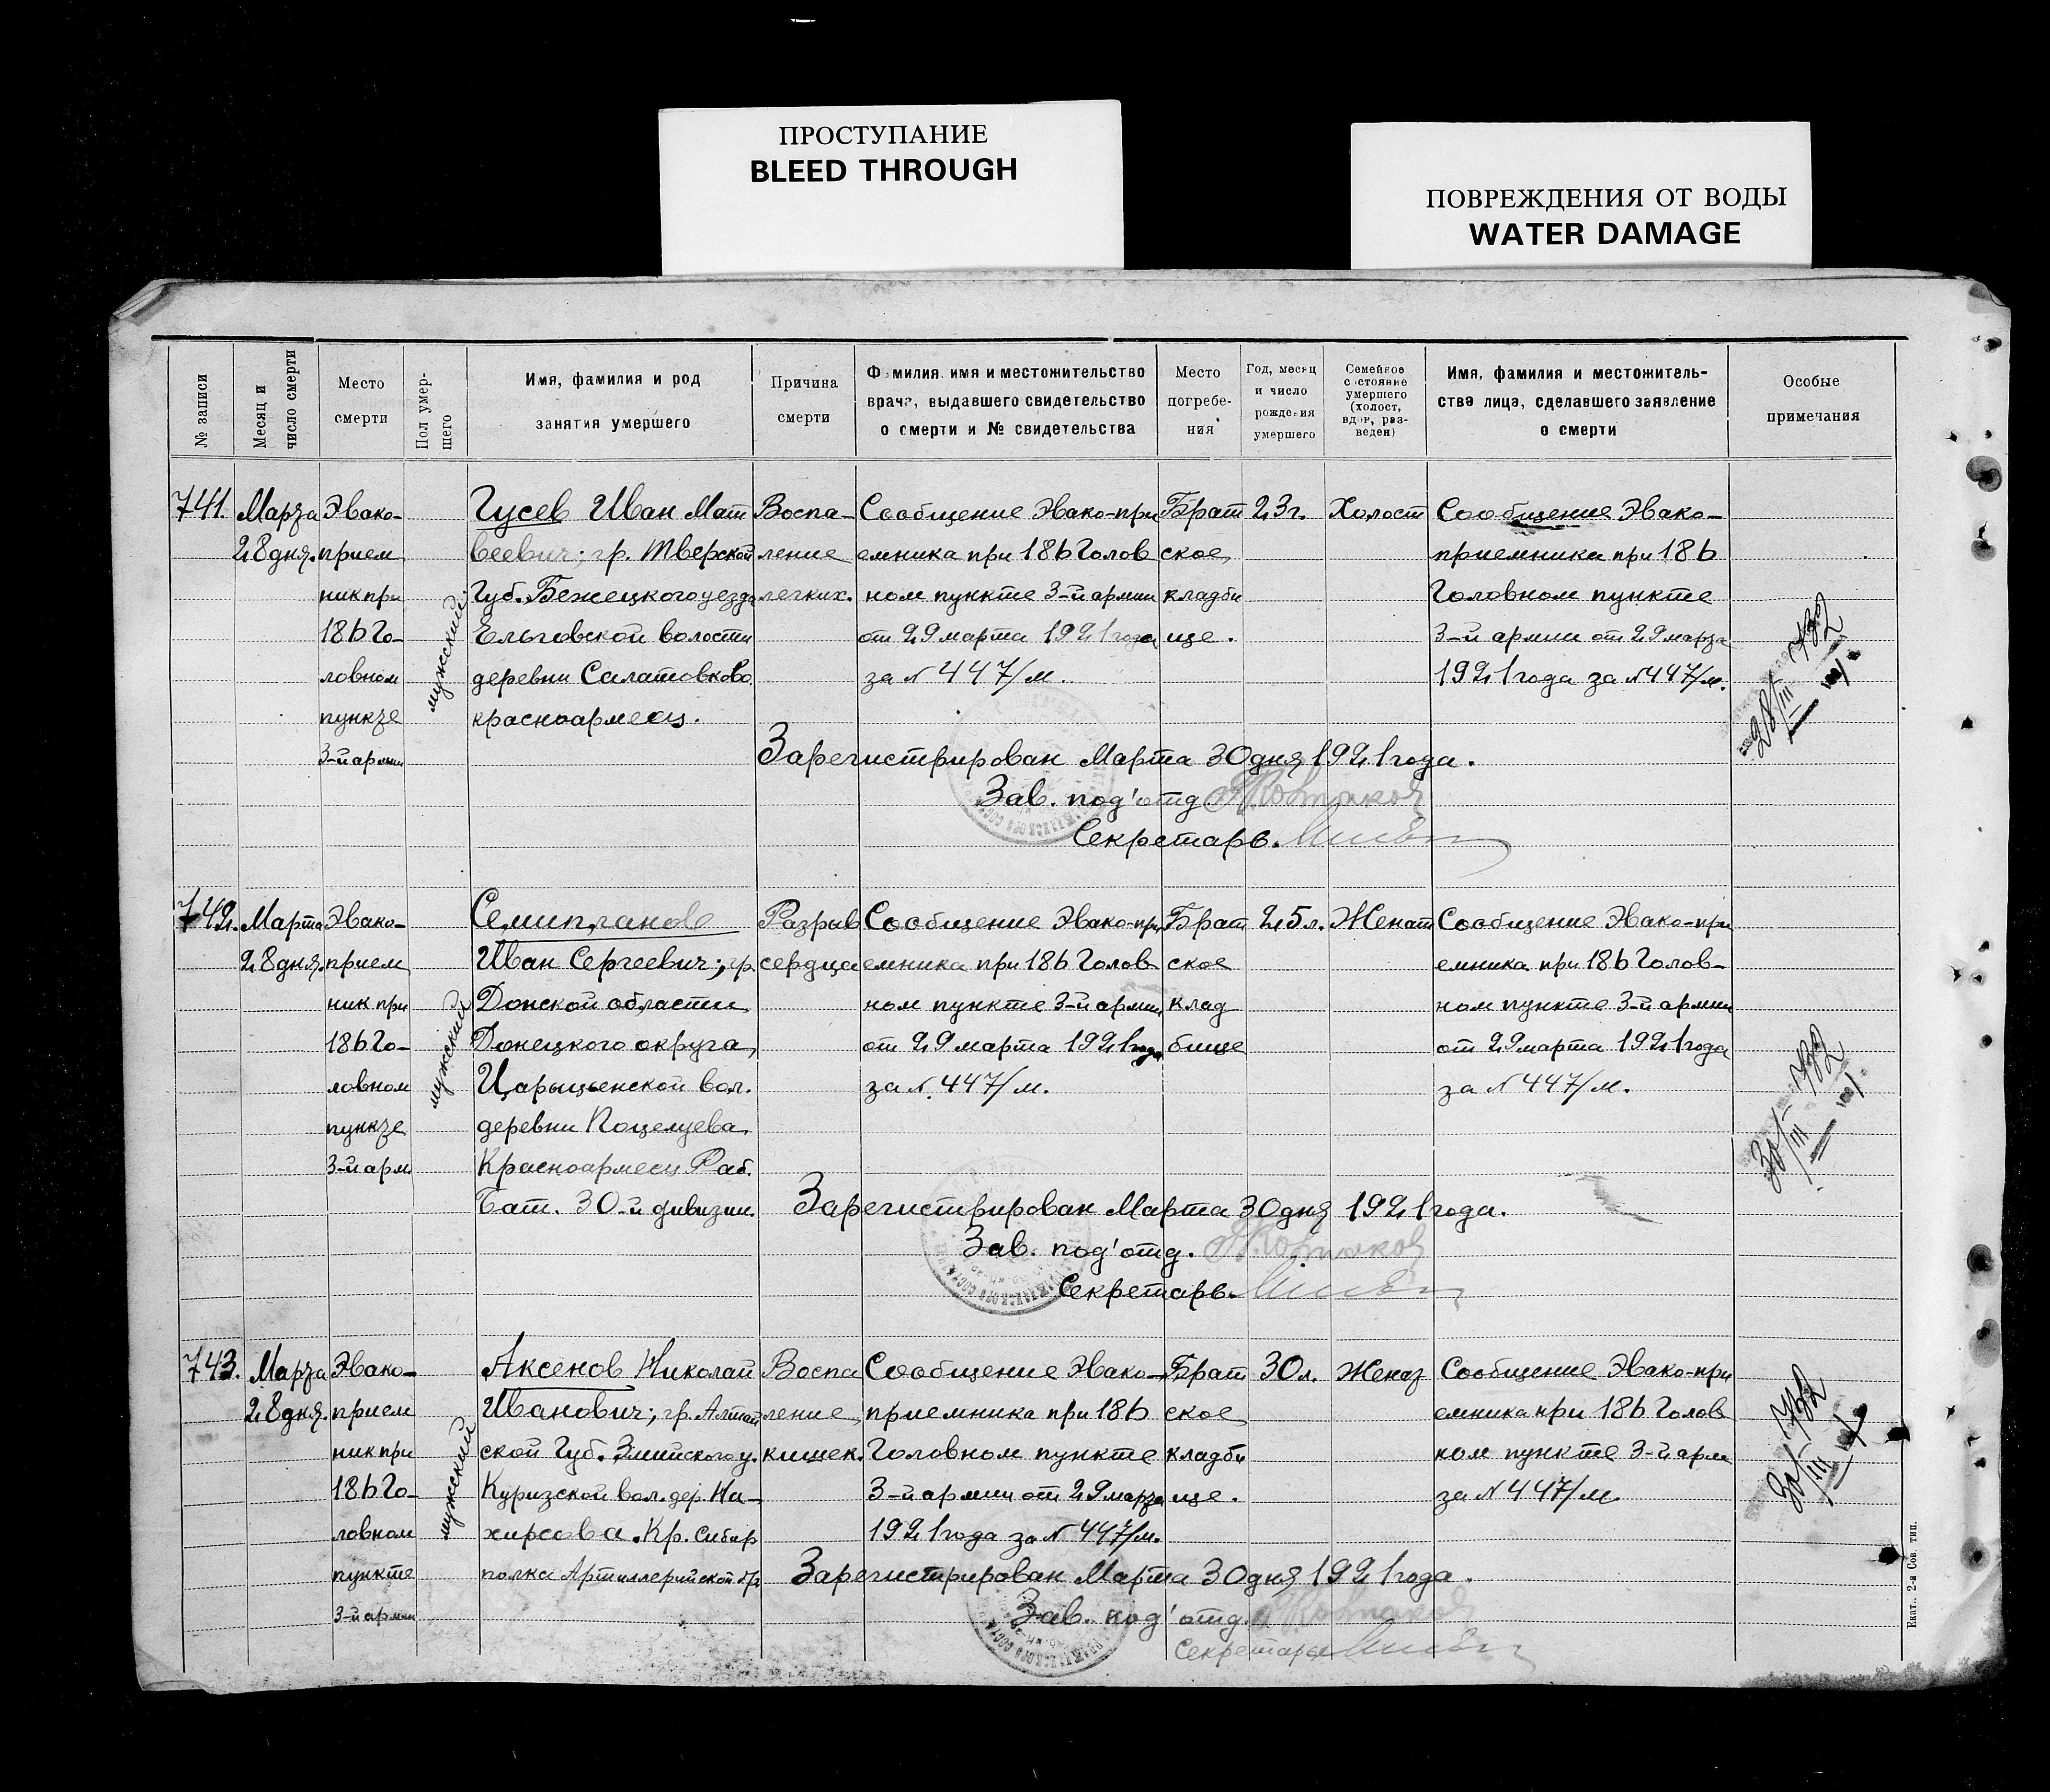 ПРОСТУПАНИЕ
BLEED THROUGH
ПОВРЕЖДЕНИЯ ОТ ВОДЫ
WATER DAMAGE
№ записи
Месяц и
число смерти
Место
смерти
Пол умер-
шего
Имя, фамилия и род
занятия умершего
Причина
смерти
Фамилия, имя и местожительство
врача, выдавшего свидетельство
о смерти и № свидетельства
Место
погребе-
ния
Год, месяц
и число
рождения
умершего
Семейное
состояние
умершего
(холост,
вдов, раз-
веден)
Имя, фамилия и местожитель-
ства лица, сделавшего заявление
о смерти
Особые
примечания
741.
Марта
28 дня.
Эвако-
прием
ник при
186 Го-
ловном
пункте
3-й армии
мужский
Гусев Иван Мат
веевич; гр. Тверской
Губ. Бежецкого уезда
Ельговской волости
деревни Салатовково.
красноармеец.
Воспа-
ление
легких.
Сообщение Эвако-при
емника при 186 Голов
ном пункте 3-й армии
от 29 марта 1921 года
за № 447/м.
Брат
ское
кладби
ще.
23 г.
Холост
Сообщение Эвако-
приемника при 186
Головном пункте
3-й армии от 29 марта
1921 года за № 447/м.
Зарегистрирован Марта 30 дня 1921 года.
Зав. под'отд.
Секретарь.
742.
Марта
28 дня.
Эвако-
прием
ник при
186 Го-
ловном
пункте
3-й арм
мужский
Семипланов
Иван Сергеевич; гр.
Донской области
Донецкого округа,
Царыценской вол.
деревни Поцелуева.
Красноармеец Раб.
Бат. 30-й дивизии.
Разрыв
сердца
Сообщение Эвако-при
емника при 186 Голов
ном пункте 3-й армии
от 29 марта 1921 года
за №. 447/м.
Брат
ское
клад
бище
25 л.
Женат
Сообщение Эвако-при
емника при 186 Голов-
ном пункте 3-й армии
от 29 марта 1921 года
за № 447/м.
Зарегистрирован Марта 30 дня 1921 года.
Зав. под'отд.
Секретарь.
743.
Марта
28 дня.
Эвако-
прием
ник при
186 Го-
ловном
пункте
3-й армии
мужский
Аксенов Николай
Иванович; гр. Алтай
ской Губ. Змийского у.
Куризской вол. дер. На-
хирсова. Кр. Сибир
полка Артиллерийской
Воспа
ление
кишек.
Сообщение Эвако-
приемника при 186
Головном пункте
3-й армии от 29 марта
1921 года за № 447/м.
Брат
ское
кладби
ще.
30 л.
Женат
Сообщение Эвако-при
емника при 186 Голов
ном пункте 3-й арм
за № 447/м.
Зарегистрирован Марта 30 дня 1921 года.
Зав. под'отд.
Секретарь
Екат.. 2-я Сов. тип.